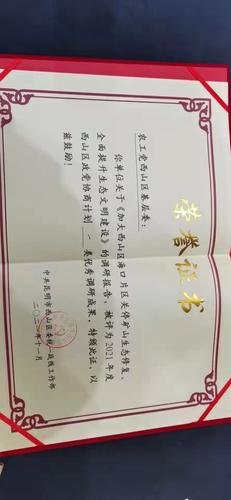 荣誉证书
农工党西山区基层委：
你单位关于《加大西山区海口片区关停矿山生态修复，
全面提升生态文明建设》的调研报告，被评为2021年度
西山区政党协商计划一类优秀调研成果，特颁此证，以
兹鼓励！
中共昆明市西山区委统一战线工作部
二〇二一年十一月